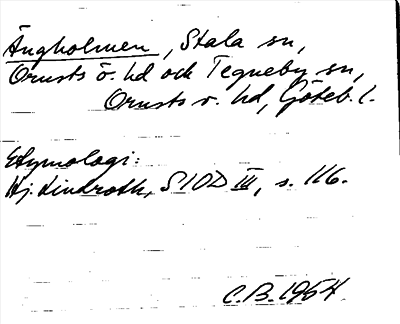 Ängholmen, Stala sn,
Orusts ö. hd och Tegneby sn,
Orusts v. hd, Göteb. l.
Etymologi:
Hj. Lindroth, SIOD III, s. 116.
C.B. 1964.